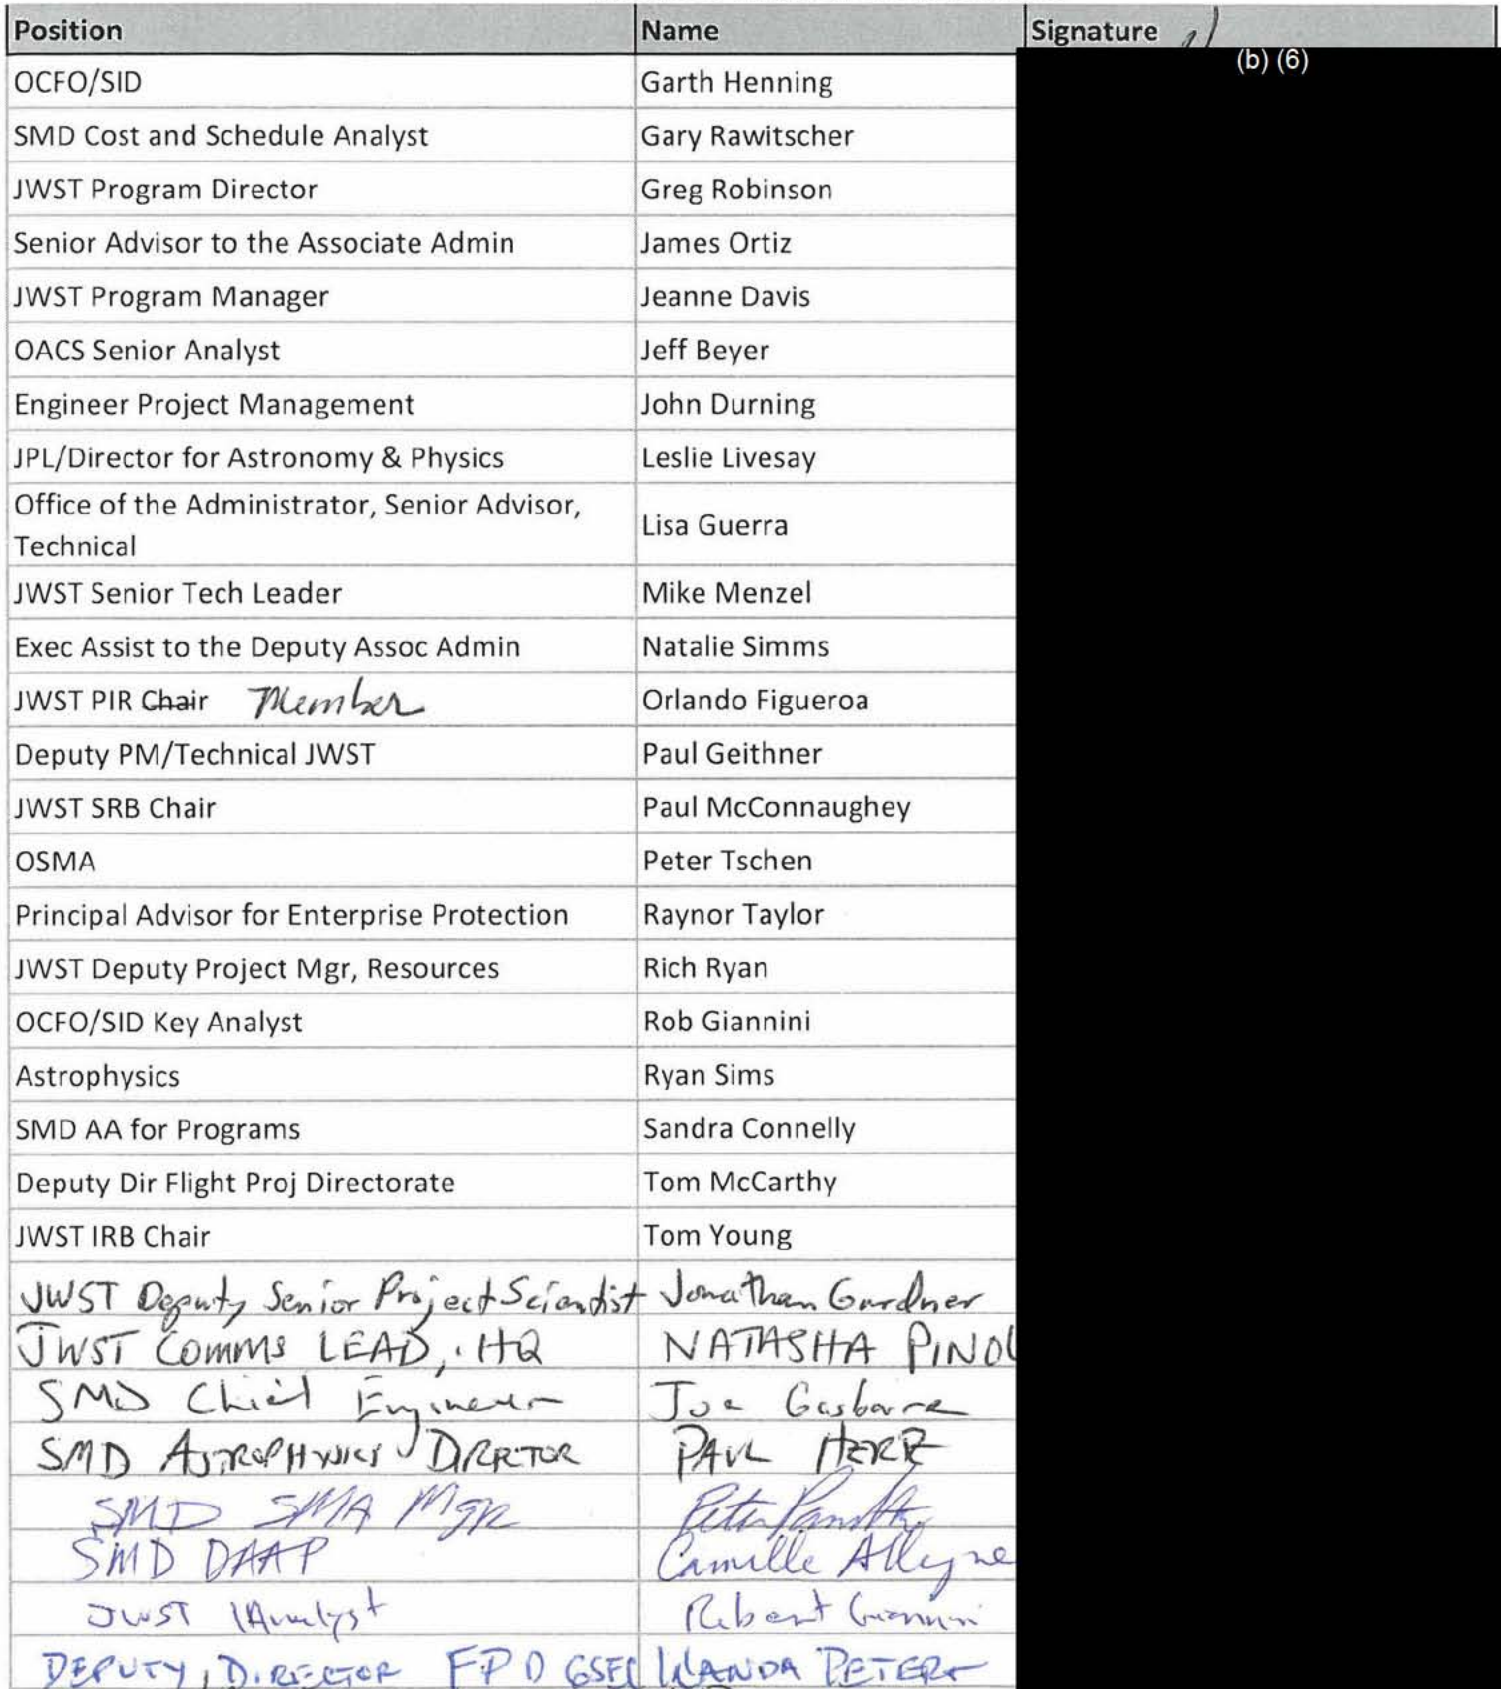 Position Name Signature
(b) (6)
OCFO/SID Garth Henning
SMD Cost and Schedule Analyst Gary Rawitscher
JWST Program Director Greg Robinson
Senior Advisor to the Associate Admin James Ortiz
JWST Program Manager Jeanne Davis
OACS Senior Analyst Jeff Beyer
Engineer Project Management John Durning
JPL/Director for Astronomy & Physics Leslie Livesay
Office of the Administrator, Senior Advisor,
Technical Lisa Guerra
JWST Senior Tech Leader Mike Menzel
Exec Assist to the Deputy Assoc Admin Natalie Simms
JWST PIR Chair Member Orlando Figueroa
Deputy PM/Technical JWST Paul Geithner
JWST SRB Chair Paul McConnaughey
OSMA Peter Tschen
Principal Advisor for Enterprise Protection Raynor Taylor
JWST Deputy Project Mgr, Resources Rich Ryan
OCFO/SID Key Analyst Rob Giannini
Astrophysics Ryan Sims
SMD AA for Programs Sandra Connelly
Deputy Dir Flight Proj Directorate Tom McCarthy
JWST IRB Chair Tom Young
JWST Deputy Senior Project Scientist Jonathan Gardner
JWST Comms LEAD, HQ NATASHA
SMD Chief Engineer Joe
SMD ASTROPHYSICS DIRECTOR PAUL HERTZ
SMD SMA Mgr Peter
SMD DAAP Camille Alleyne
JWST Analyst Robert Giannini
DEPUTY DIRECTOR FPD GSFC WANDA PETERS